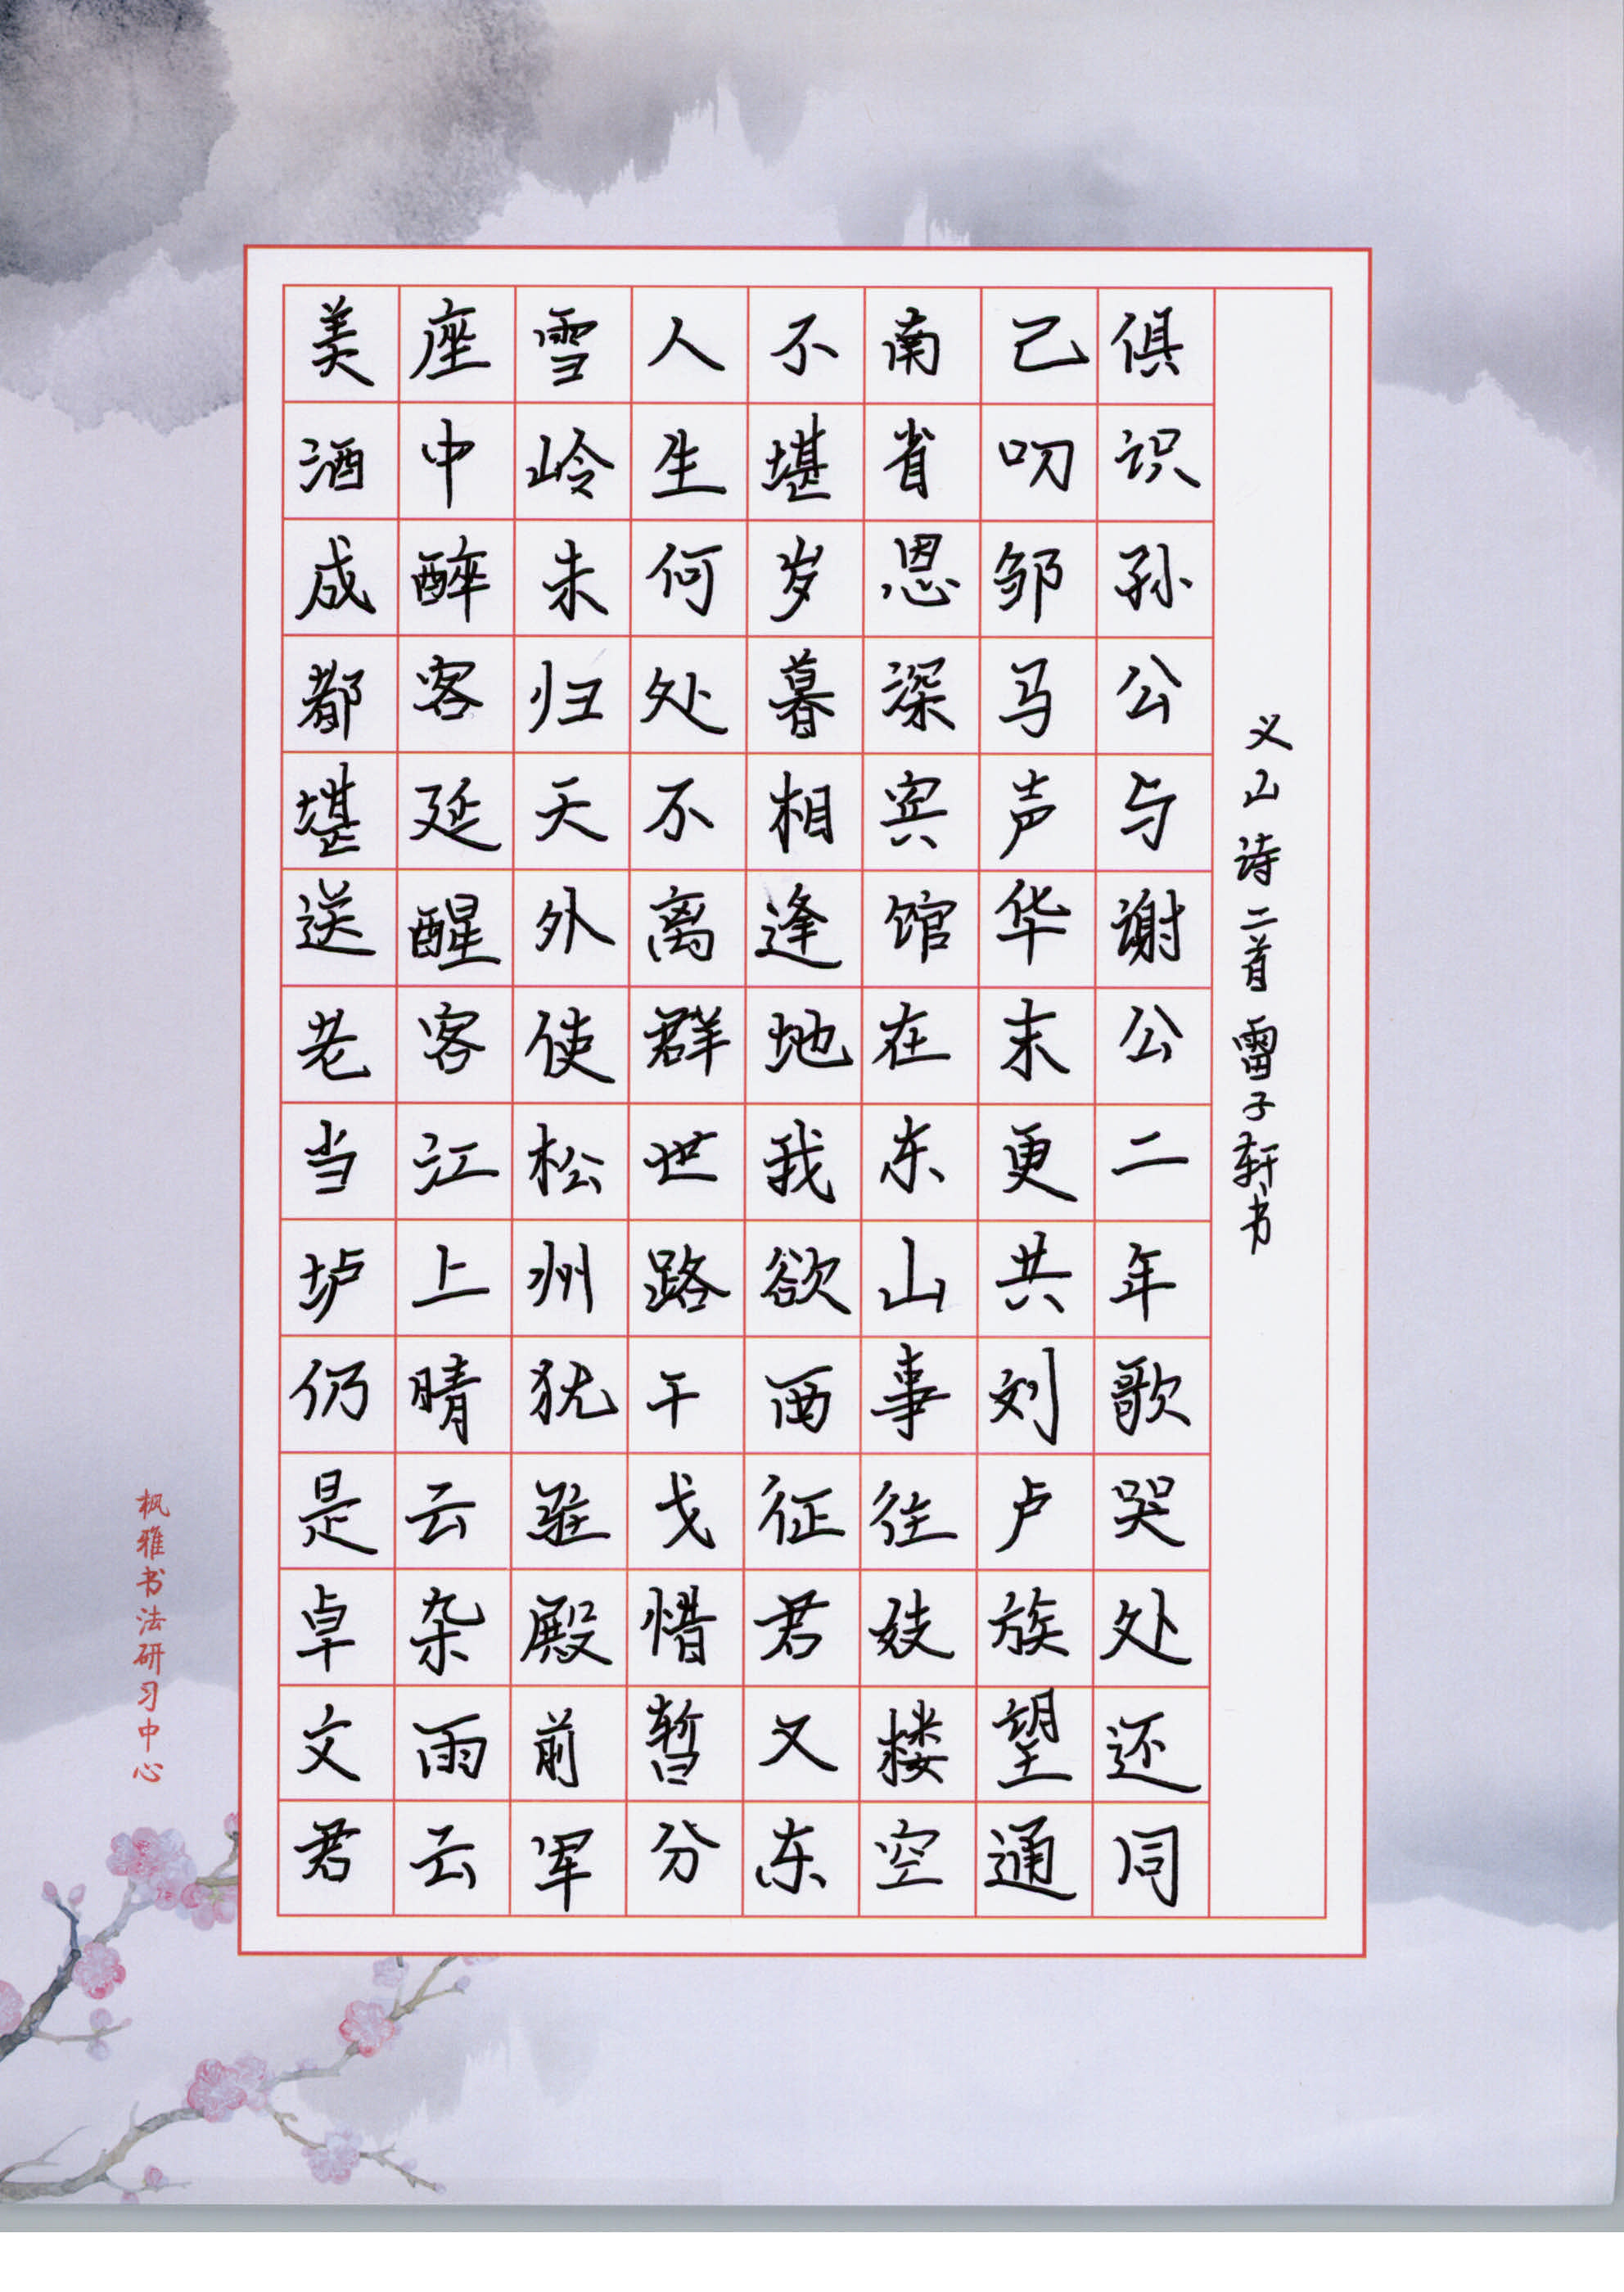 义山诗二首 雷子轩书
俱识孙公与谢公二年歌哭处还同
己叨邹马声华末更共刘卢族望通
南省恩深宾馆在东山事往妓楼空
不堪岁暮相逢地我欲西征君又东
人生何处不离群世路干戈惜暂分
雪岭未归天外使松州犹驻殿前军
座中醉客延醒客江上晴云杂雨云
美酒成都堪送老当垆仍是卓文君
枫雅书法研习中心